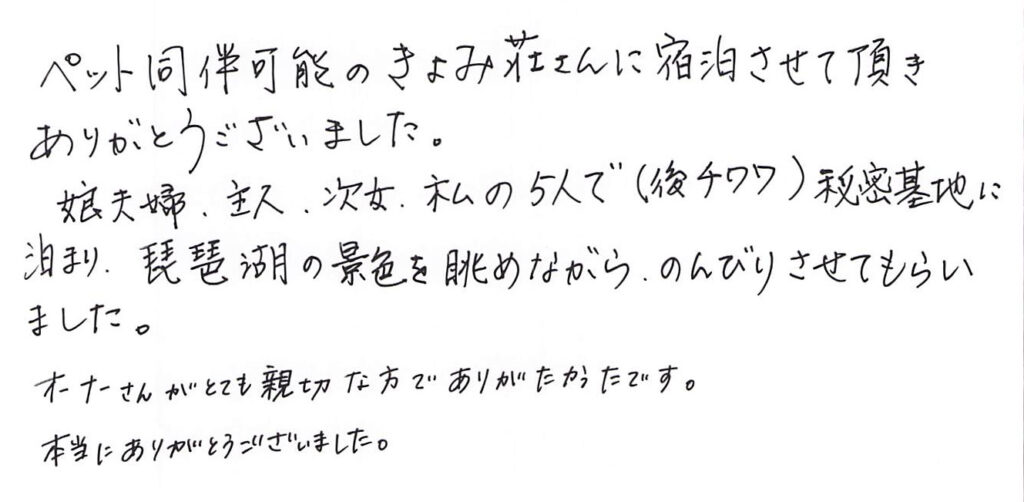 ペット同伴可能のきよみ荘さんに宿泊させて頂き
ありがとうございました。
娘夫婦、主人、次女、私の5人で(後チワワ)秘密基地に
泊まり、琵琶湖の景色を眺めながら、のんびりさせてもらい
ました。
オーナーさんがとても親切な方でありがたかったです。
本当にありがとうございました。